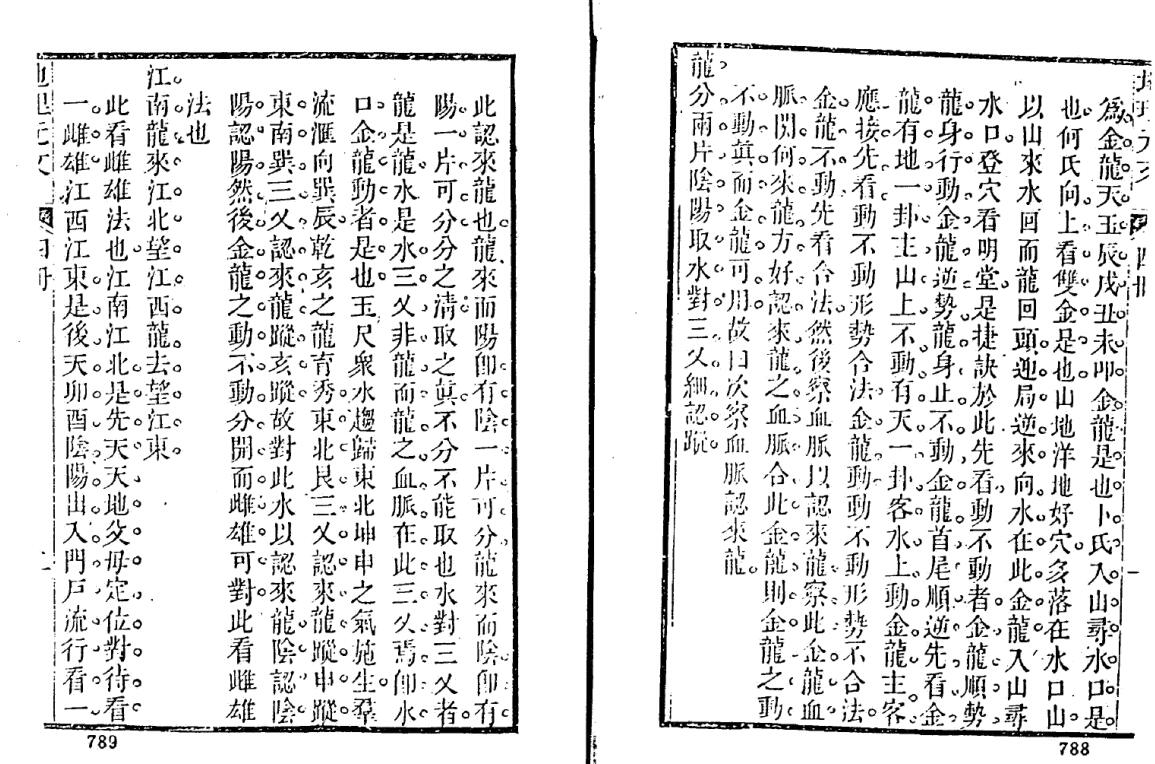 為金龍天玉辰戌丑未叩金龍是也卜氏入山尋水口是
也何氏向上看雙金是也山地洋地好穴多落在水口山
以山來水回而龍回頭迎局逆來向水在此金龍入山尋
水口登穴看明堂是捷訣於此先看動不動者金龍順勢
龍身行動金龍逆勢龍身止不動金龍首尾順逆先看金
龍有地一卦主山上不動有天一卦客水上動金龍主客
應接先看動不動形勢合法金龍動動不動形勢不合法
金龍不動先看合法然後察血脈以認來龍察此金龍血
脈閱何來龍方好認來龍之血脈合此金龍則金龍之動
不動眞而金龍可用故曰次察血脈認來龍
龍分兩片陰陽取水對三叉細認蹤
788
此認來龍也龍來而陽卽有陰一片可分龍來而陰卽有
陽一片可分分之清取之眞不分不能取也水對三叉者
龍是龍水是水三叉非龍而龍之血脈在此三叉焉卽水
口金龍動者是也玉尺衆水趨歸東北坤申之氣施生羣
流滙向巽辰乾亥之龍育秀東北艮三叉認來龍蹤申蹤
東南巽三叉認來龍蹤亥蹤故對此水以認來龍陰認陰
陽認陽然後金龍之動不動分開而雌雄可對此看雌雄
法也
江南龍來江北望江西龍去望江東
此看雌雄法也江南江北是先天天地父母定位對待看
一雌雄江西江東是後天卯酉陰陽出入門戶流行看一
789